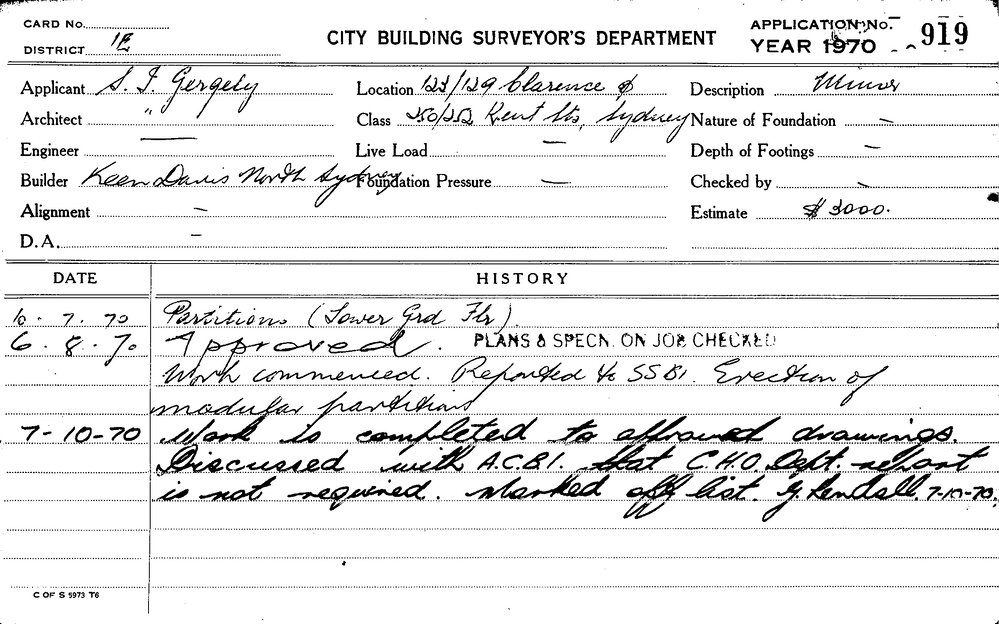 CARD No.
DISTRICT 1E
CITY BUILDING SURVEYOR'S DEPARTMENT
APPLICATION No. 919
YEAR 1970
Applicant S. I. Gergely
Location 123/129 Clarence &
Description Minor
Architect "
Class 250/252 Kent Sts, Sydney
Nature of Foundation –
Engineer —
Live Load —
Depth of Footings –
Builder Keen Davis North Sydney
Foundation Pressure —
Checked by –
Alignment –
Estimate $ 3000.
D.A. –
DATE HISTORY
10. 7. 70 Partitions (Lower Grd Flr).
6. 8. 70 Approved. PLANS & SPECN. ON JOB CHECKED
Work commenced. Reported to SSBI. Erection of
modular partitions
7-10-70 Work is completed to approved drawings.
Discussed with A.C.B.I. that C.H.O. Dept. report
is not required. Marked off list. G. Kendall. 7-10-70.
C OF S 5973 T6